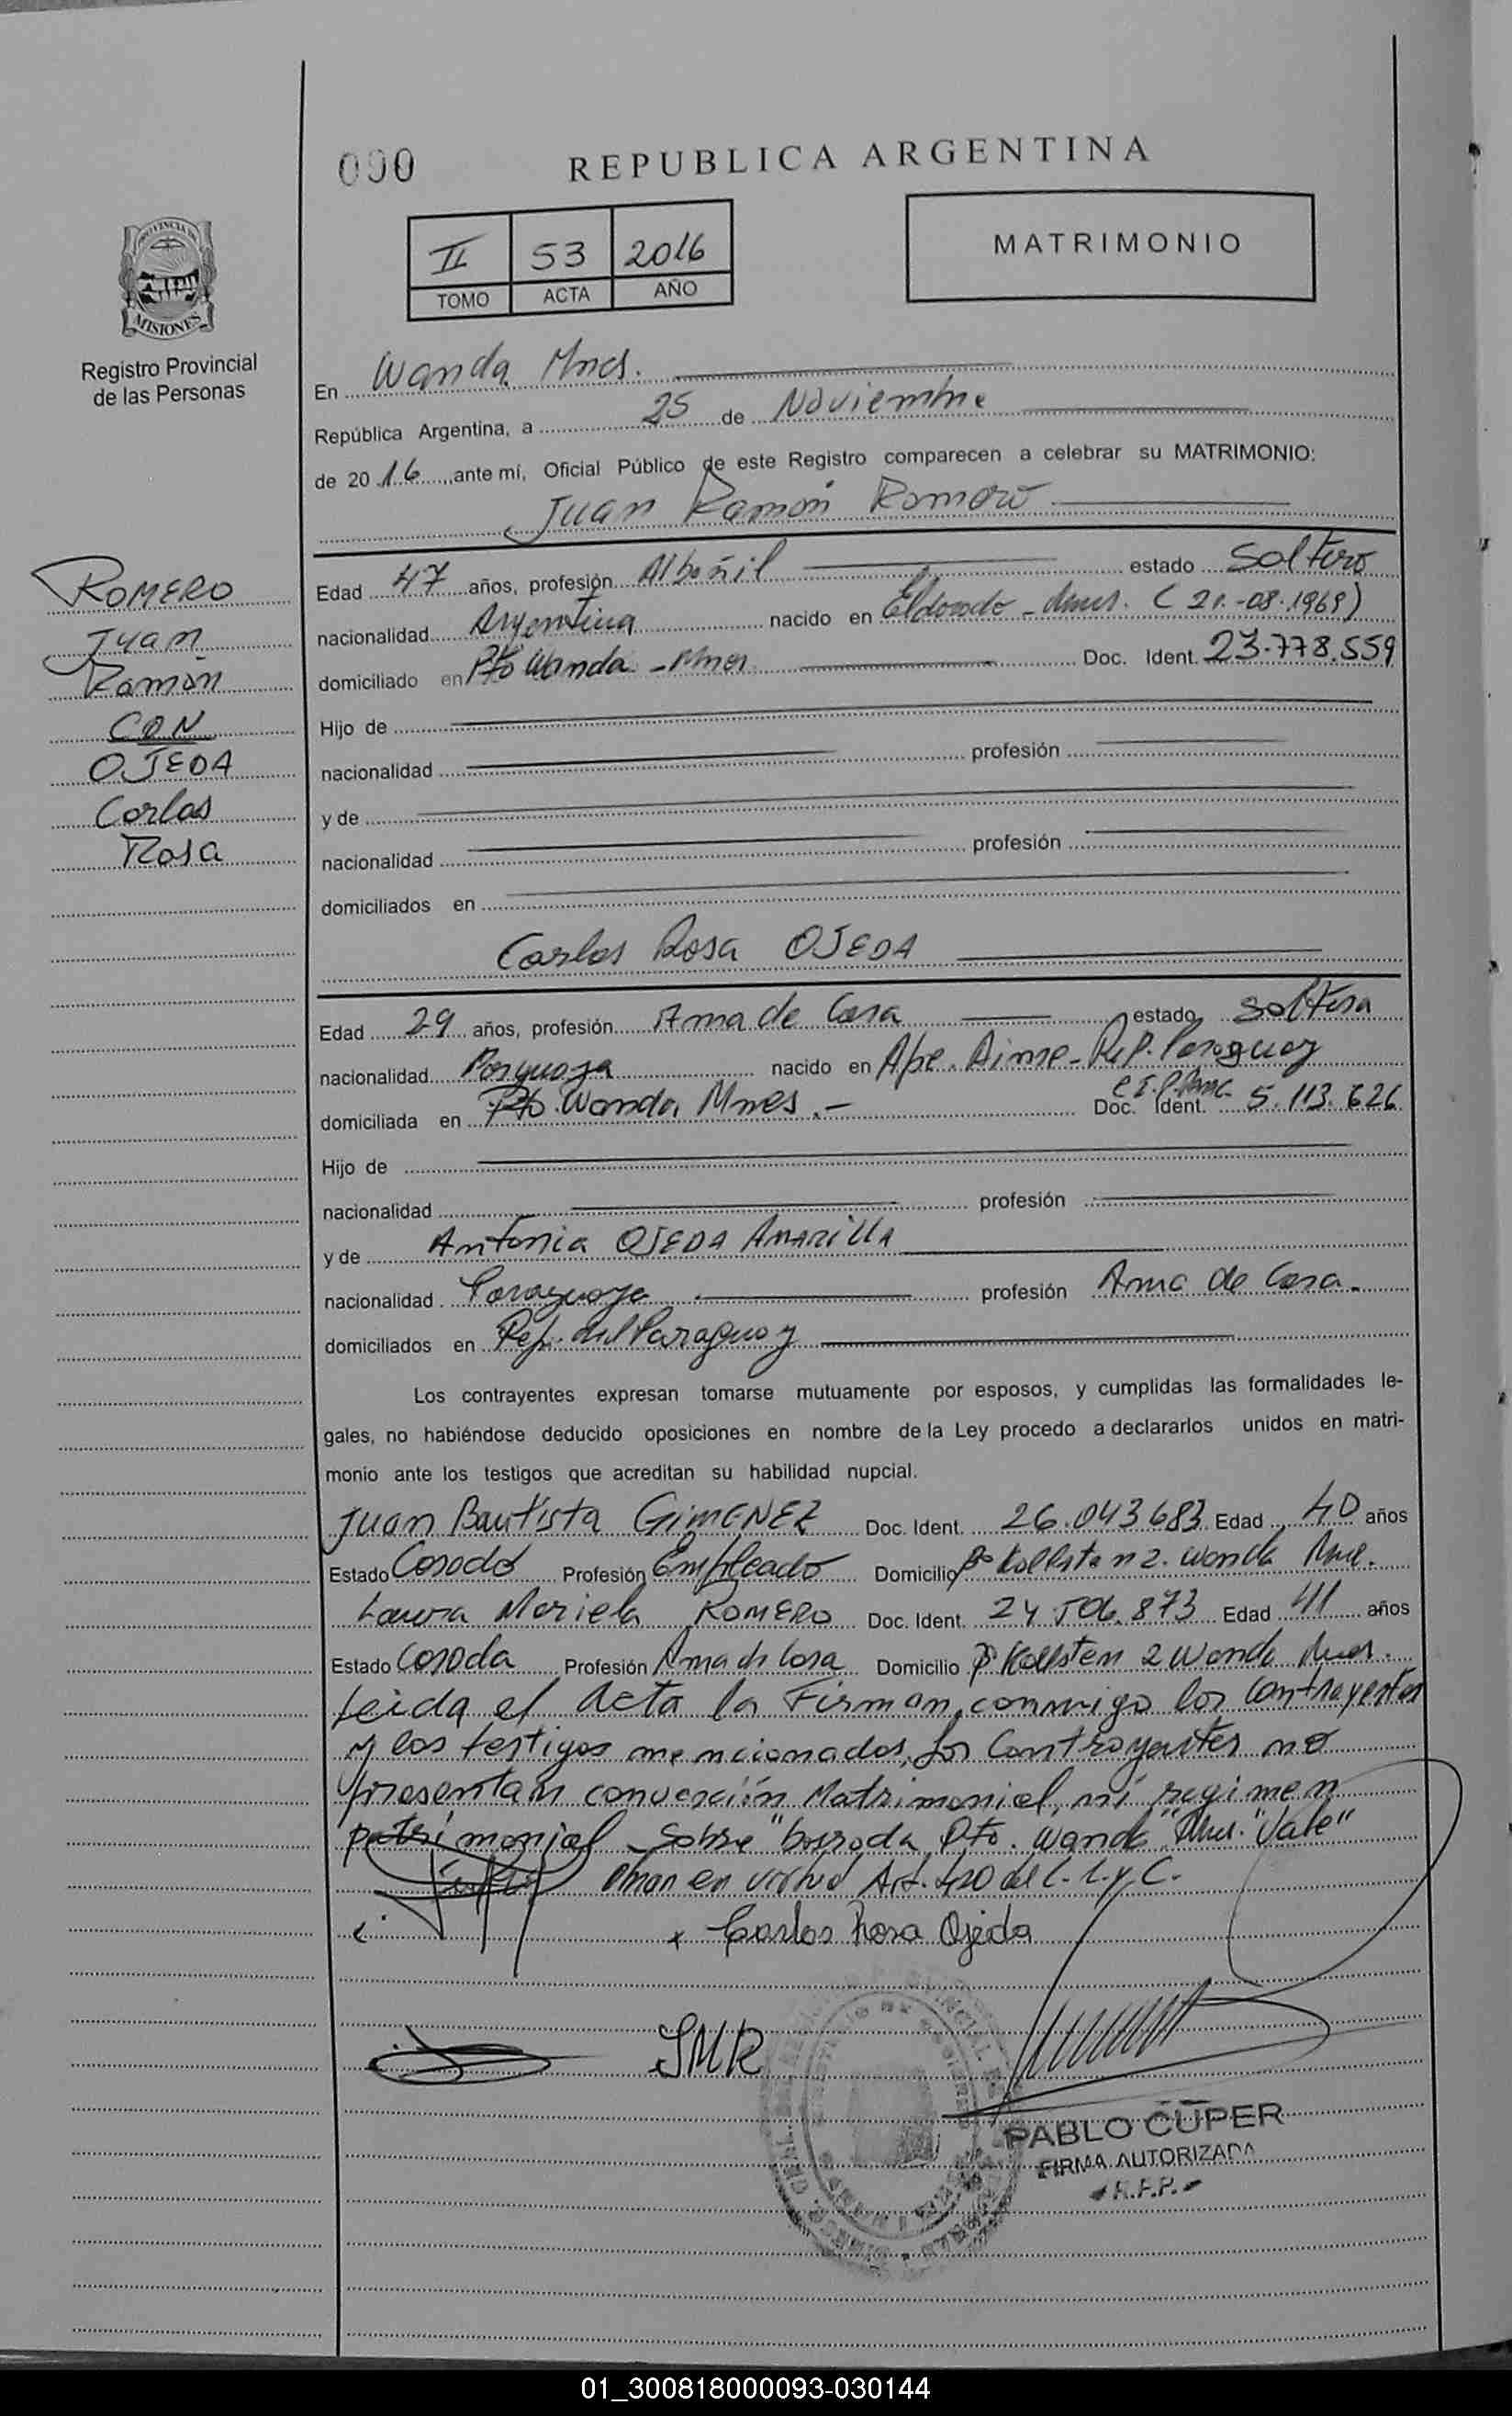 000
REPUBLICA ARGENTINA
II 53 2016
TOMO ACTA AÑO
MATRIMONIO
PROVINCIA DE
MISIONES
Registro Provincial
de las Personas
En Wanda Mnes.
República Argentina, a 25 de Noviembre
de 2016, ante mí, Oficial Público de este Registro comparecen a celebrar su MATRIMONIO:
Juan Ramón Romero
ROMERO
Juan
Ramón
CON
OJEDA
Carlos
Rosa
Edad 47 años, profesión Albañil estado Soltero
nacionalidad Argentina nacido en Eldorado - Mnes. (21-08-1969)
domiciliado en Pto Wanda - Mnes Doc. Ident. 23.778.559
Hijo de
nacionalidad profesión
y de
nacionalidad profesión
domiciliados en
Carlos Rosa OJEDA
Edad 29 años, profesión Ama de Casa estado Soltera
nacionalidad Paraguaya nacido en Rep. Paraguay
domiciliada en Pto. Wanda Mnes.- Doc. Ident. 5.113.626
Hijo de
nacionalidad profesión
y de Antonia OJEDA AMARILLA
nacionalidad Paraguaya profesión Ama de Casa.
domiciliados en Rep. del Paraguay
Los contrayentes expresan tomarse mutuamente por esposos, y cumplidas las formalidades le-
gales, no habiéndose deducido oposiciones en nombre de la Ley procedo a declararlos unidos en matri-
monio ante los testigos que acreditan su habilidad nupcial.
Juan Bautista GIMENEZ Doc. Ident. 26.043.683 Edad 40 años
Estado Casado Profesión Empleado Domicilio 2. Wanda Mnes.
Laura Mariela ROMERO Doc. Ident. 24.506.873 Edad 41 años
Estado Casada Profesión Ama de Casa Domicilio 2 Wanda Mnes.
Leida el Acta la Firman conmigo los Contrayentes
y los testigos mencionados, los Contrayentes no
presentan convención Matrimonial, ni regimen
patrimonial - Sobre "borrado Pto. Wanda Mnes." "Vale"
en virtud Art. 420 del C. C. y C.
x Carlos Rosa Ojeda
PABLO CÜPER
FIRMA AUTORIZADA
- R.P.P. -
01_300818000093-030144